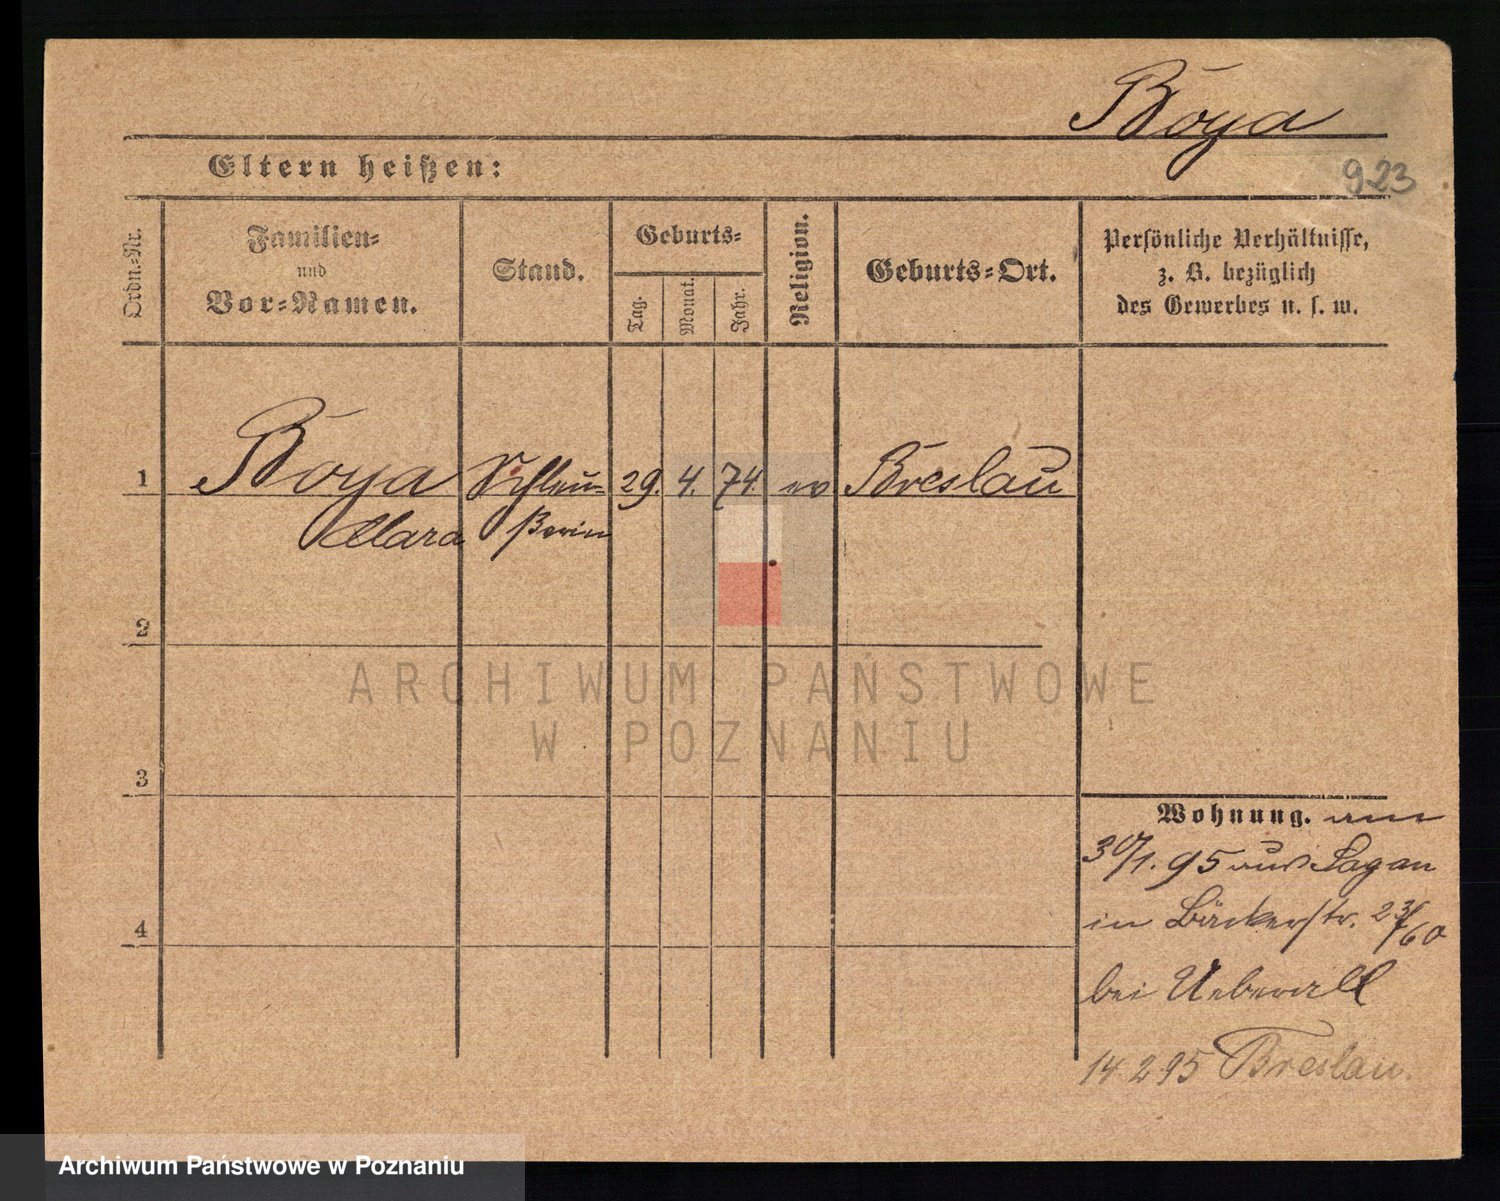 Boya
923
Eltern heißen:
Ordn.-Nr.
Familien-
und
Vor-Namen.
Stand.
Geburts-
Tag.
Monat.
Jahr.
Religion.
Geburts-Ort.
Persönliche Verhältnisse,
z. B. bezüglich
des Gewerbes u. s. w.
1 Boya Schleu- 29. 4. 74. ev Breslau
Clara ßerin
2
3
4
Wohnung. am
30/1. 95 aus Sagan
in Bäckerstr.
bei Ueberall
14 2 95 Breslau.
ARCHIWUM PAŃSTWOWE
W POZNANIU
Archiwum Państwowe w Poznaniu